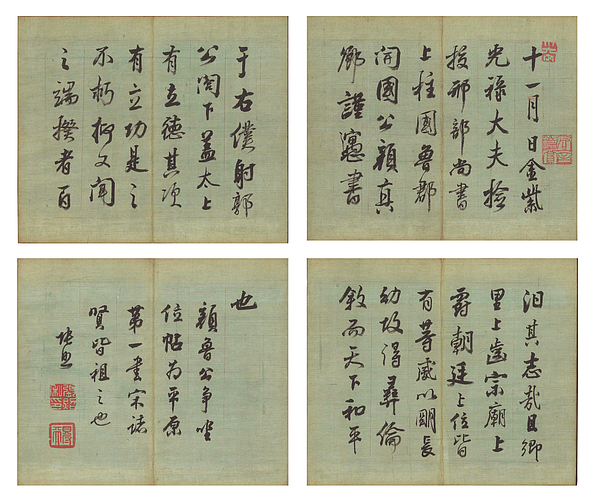 十一月日金紫
光祿大夫檢
挍刑部尚書
上柱國魯郡
開國公顏真
卿謹寓書
于右僕射郭
公閤下蓋太上
有立德其次
有立功是之
不朽抑又聞
之端揆者百
汨其志哉且鄉
里上齒宗廟上
爵朝廷上位皆
有等威以明長
幼故得彝倫
敘而天下和平
也
顏魯公爭坐
位帖為平原
第一書宋諸
賢皆祖之也
張照